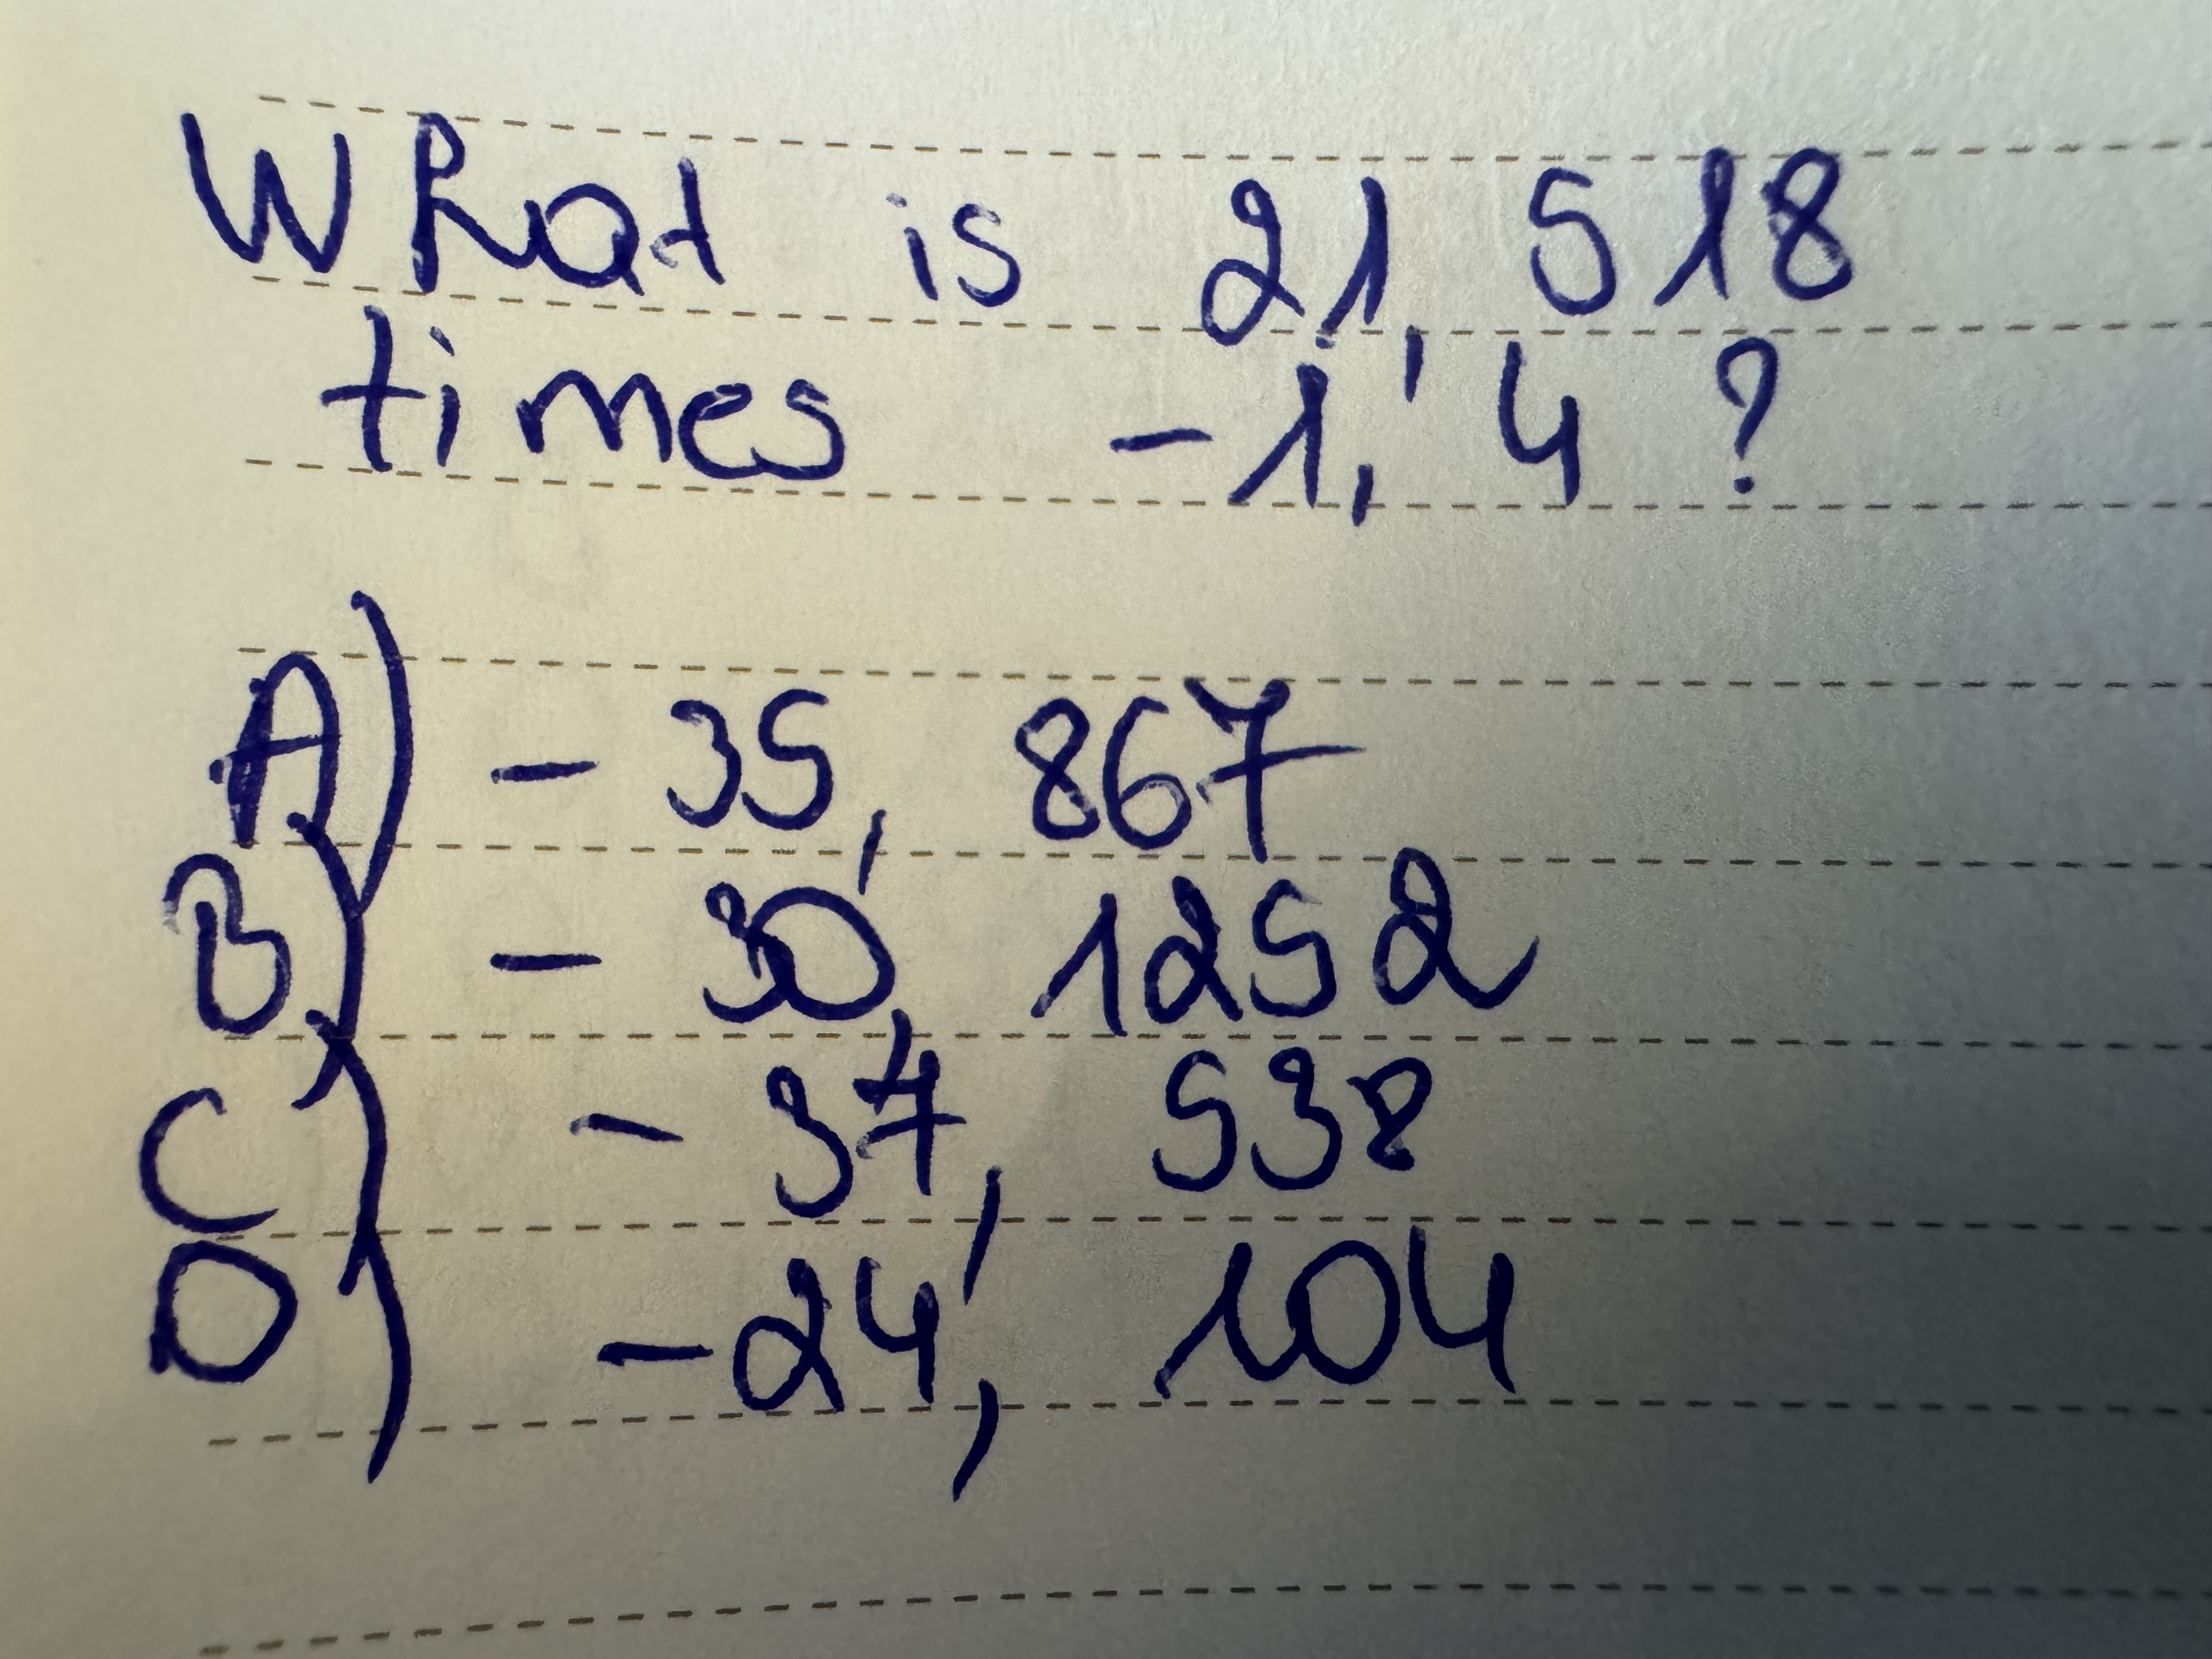 What is 21, 518
times -1, 4 ?
A.) - 35, 867
B.) - 30, 1252
C) - 37, 538
D) - 24, 104